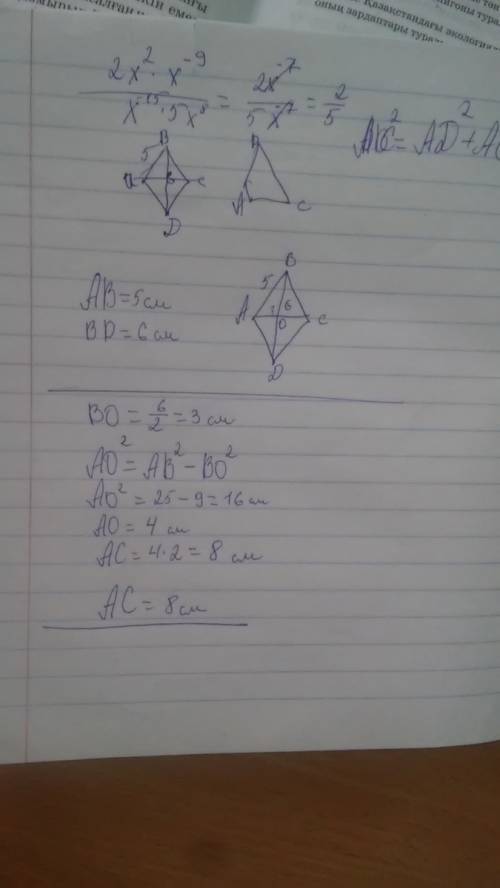 Қазақстандағы экология
оның зардаптары тура
2x² · x⁻⁹ / x⁻¹⁵ · 5x⁸ = 2x⁻⁷ / 5x⁻⁷ = 2/5
= AD² + A
B
5
C
D
B
A
C
B
5
A
6
O
C
D
AB = 5 см
BD = 6 см
BO = 6/2 = 3 см
AO² = AB² − BO²
AO² = 25 − 9 = 16 см
AO = 4 см
AC = 4 · 2 = 8 см
AC = 8 см